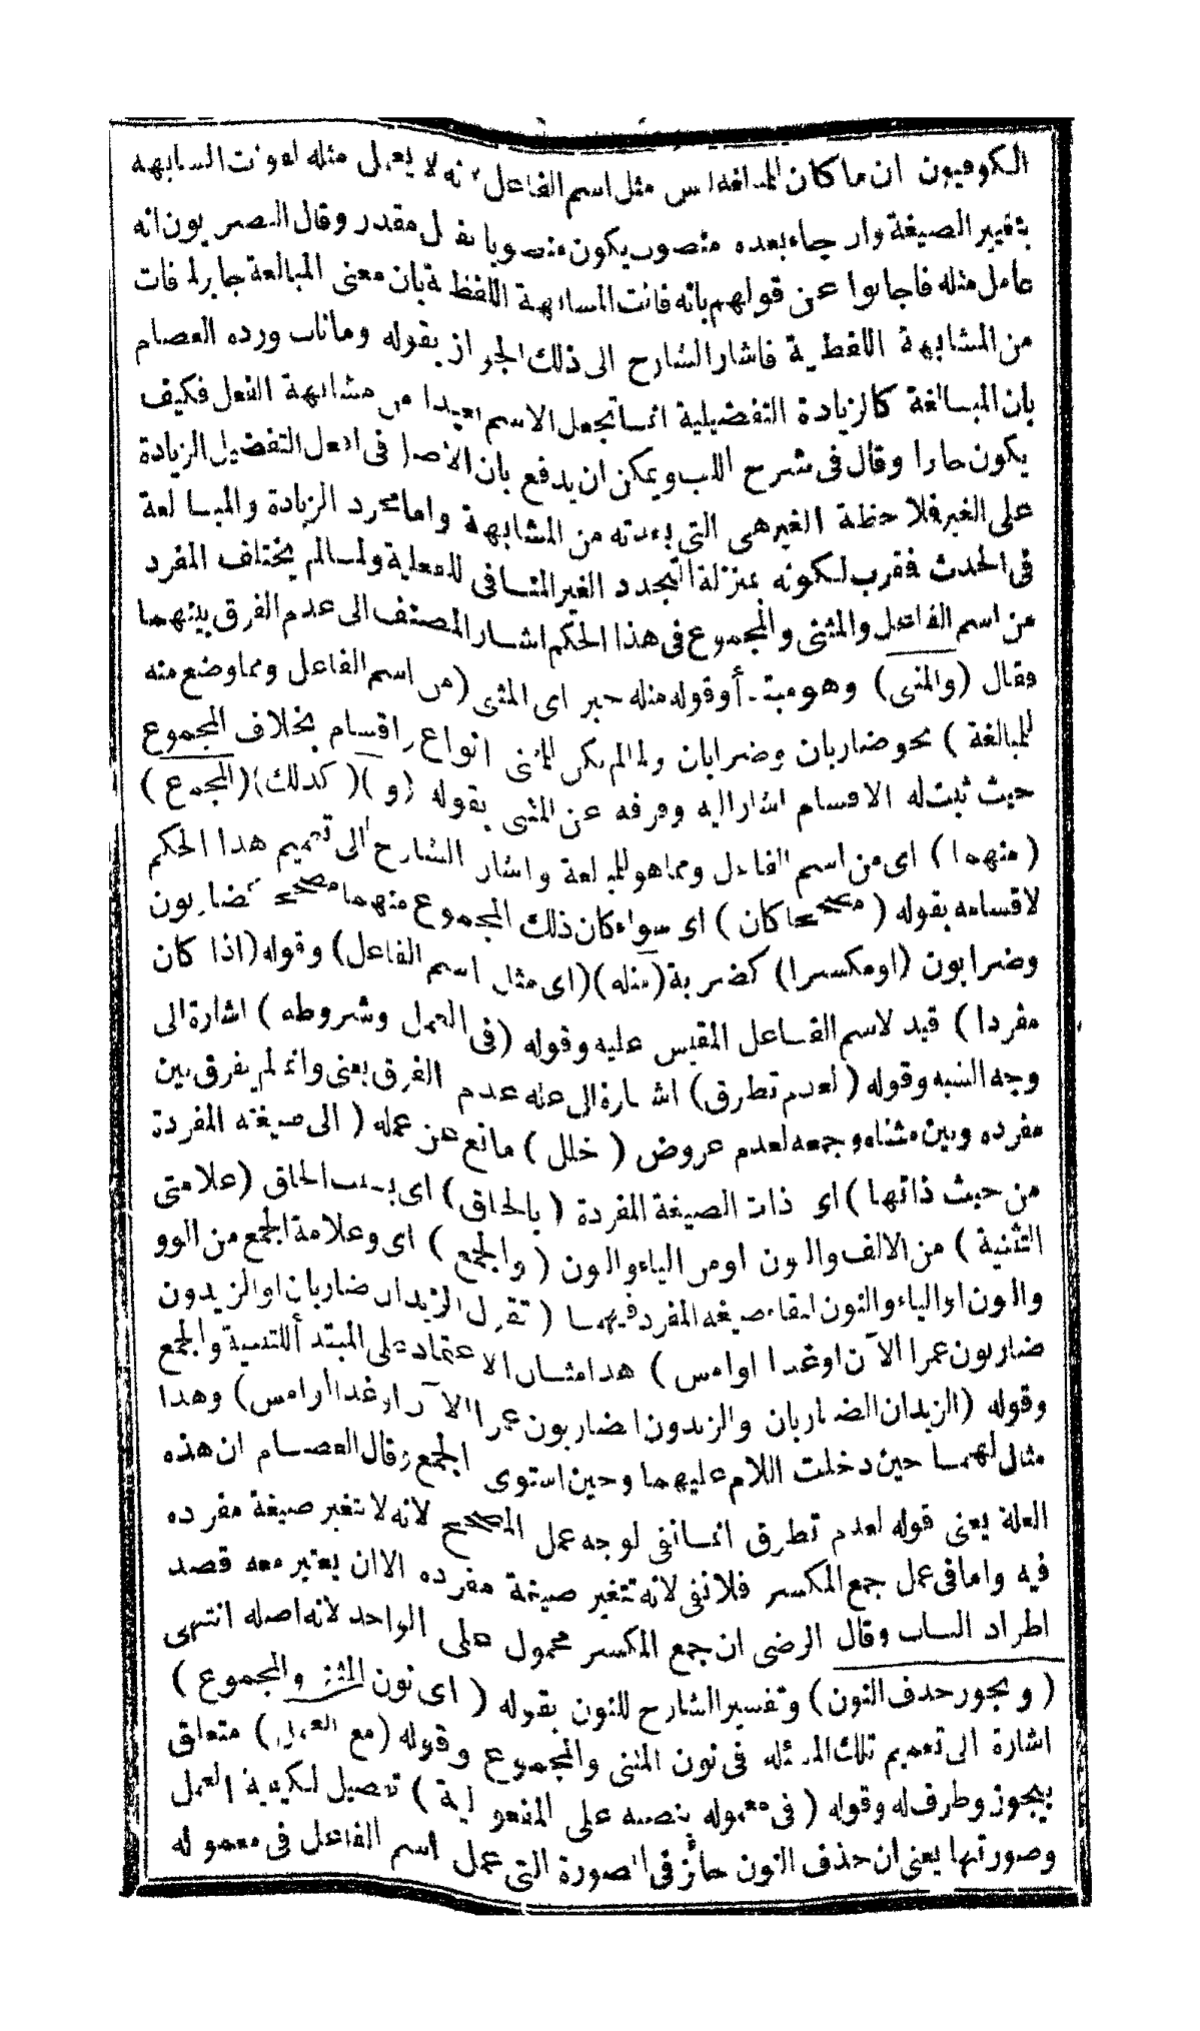 الكوفيون ان ما كان للمبالغة ليس مثل اسم الفاعل لانه لا يعمل مثله لفوت المشابهة
بتغيير الصيغة وان جاء بعده منصوب يكون منصوبا بفعل مقدر وقال البصريون انه
عامل مثله فاجابوا عن قولهم بانه فاتت المشابهة اللفظية بان معنى المبالغة جابر لما فات
من المشابهة اللفظية فاشار الشارح الى ذلك الجواز بقوله وما ناب ورده العصام
بان المبالغة كالزيادة التفضيلية انما تجعل الاسم بعيدا من مشابهة الفعل فكيف
يكون جابرا وقال فى شرح اللب ويمكن ان يدفع بان الاصل فى افعل التفضيل الزيادة
على الغير فملاحظة الغير هى التى بعدته من المشابهة واما مجرد الزيادة والمبالغة
فى الحدث فقرب لكونه بمنزلة التجدد الغير المنافى للفعلية ولما لم يختلف المفرد
من اسم الفاعل والمثنى والمجموع فى هذا الحكم اشار المصنف الى عدم الفرق بينهما
فقال (والمثنى) وهو مبتدأ وقوله مثله خبر اى المثنى (من اسم الفاعل ومما وضع منه
للمبالغة) نحو ضاربان وضرابان ولما لم يكن للمثنى انواع واقسام بخلاف المجموع
حيث ثبت له الاقسام اشار اليه وفرقه عن المثنى بقوله (و) (كذلك) (المجموع)
(منهما) اى من اسم الفاعل ومما هو للمبالغة واشار الشارح الى تعميم هذا الحكم
لاقسامه بقوله (مصححا كان) اى سواء كان ذلك المجموع منهما مصححا كضاربون
وضرابون (او مكسرا) كضربة (مثله) (اى مثل اسم الفاعل) وقوله (اذا كان
مفردا) قيد لاسم الفاعل المقيس عليه وقوله (فى العمل وشروطه) اشارة الى
وجه الشبه وقوله (لعدم تطرق) اشارة الى علة عدم الفرق يعنى وانما لم يفرق بين
مفرده وبين مثناه وجمعه لعدم عروض (خلل) مانع عن عمله (الى صيغته المفردة
من حيث ذاتها) اى ذات الصيغة المفردة (بالحاق) اى بسبب الحاق (علامتى
التثنية) من الالف والنون او من الياء والنون (والجمع) اى وعلامة الجمع من الوو
والنون او الياء والنون لبقاء صيغة المفرد فيهما (تقول الزيدان ضاربان او الزيدون
ضاربون عمرا الآن او غدا او امس) هذا مثال الاعتماد على المبتدأ للتثنية والجمع
وقوله (الزيدان الضاربان والزيدون الضاربون عمرا الآن او غدا او امس) وهذا
مثال لهما حين دخلت اللام عليهما وحين استوى الجمع وقال العصام ان هذه
العلة يعنى قوله لعدم تطرق انما تفى لوجه عمل المصحح لانه لا تغير صيغة مفرده
فيه واما فى عمل جمع المكسر فلا تفى لانه تتغير صيغة مفرده الا ان يعتبر معه قصد
اطراد الباب وقال الرضى ان جمع المكسر محمول على الواحد لانه اصله انتهى
(ويجوز حذف النون) وتفسير الشارح للنون بقوله (اى نون المثنى والمجموع)
اشارة الى تعميم تلك المسئلة فى نون المثنى والمجموع وقوله (مع العمل) متعلق
بيجوز وظرف له وقوله (فى معموله بنصبه على المفعولية) تفصيل لكيفية العمل
وصورتها يعنى ان حذف النون جائز فى الصورة التى عمل اسم الفاعل فى معموله